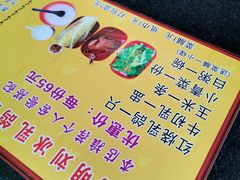 明刘冰乳鸽
本店推荐个人套餐搭配
优惠价：每份65元
红烧乳鸽一只
牛初乳一盅
玉米一条
小青菜一份
白粥一碗